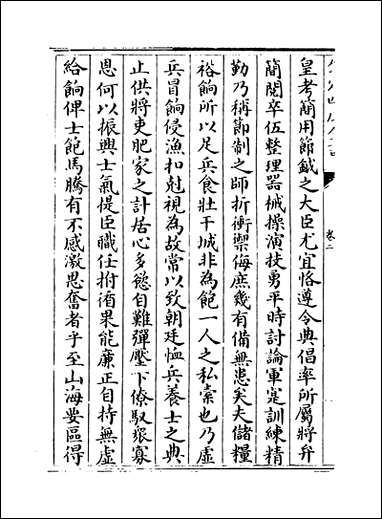 皇考簡用節鉞之大臣尤宜恪遵令典倡率所屬將弁
簡閱卒伍整理器械操演技勇平時討論軍寔訓練精
勤乃稱節制之師折衝禦侮庶幾有備無患矣夫儲糧
裕餉所以足兵食壯干城非為飽一人之私素也乃虛
兵冒餉侵漁扣尅視為故常以致朝廷恤兵養士之典
止供將吏肥家之計居心多慾自難彈壓下僚馭衆寡
恩何以振興士氣提臣職任拊循果能廉正自持無虛
給餉俾士飽馬騰有不感激思奮者乎至山海要區得
卷二